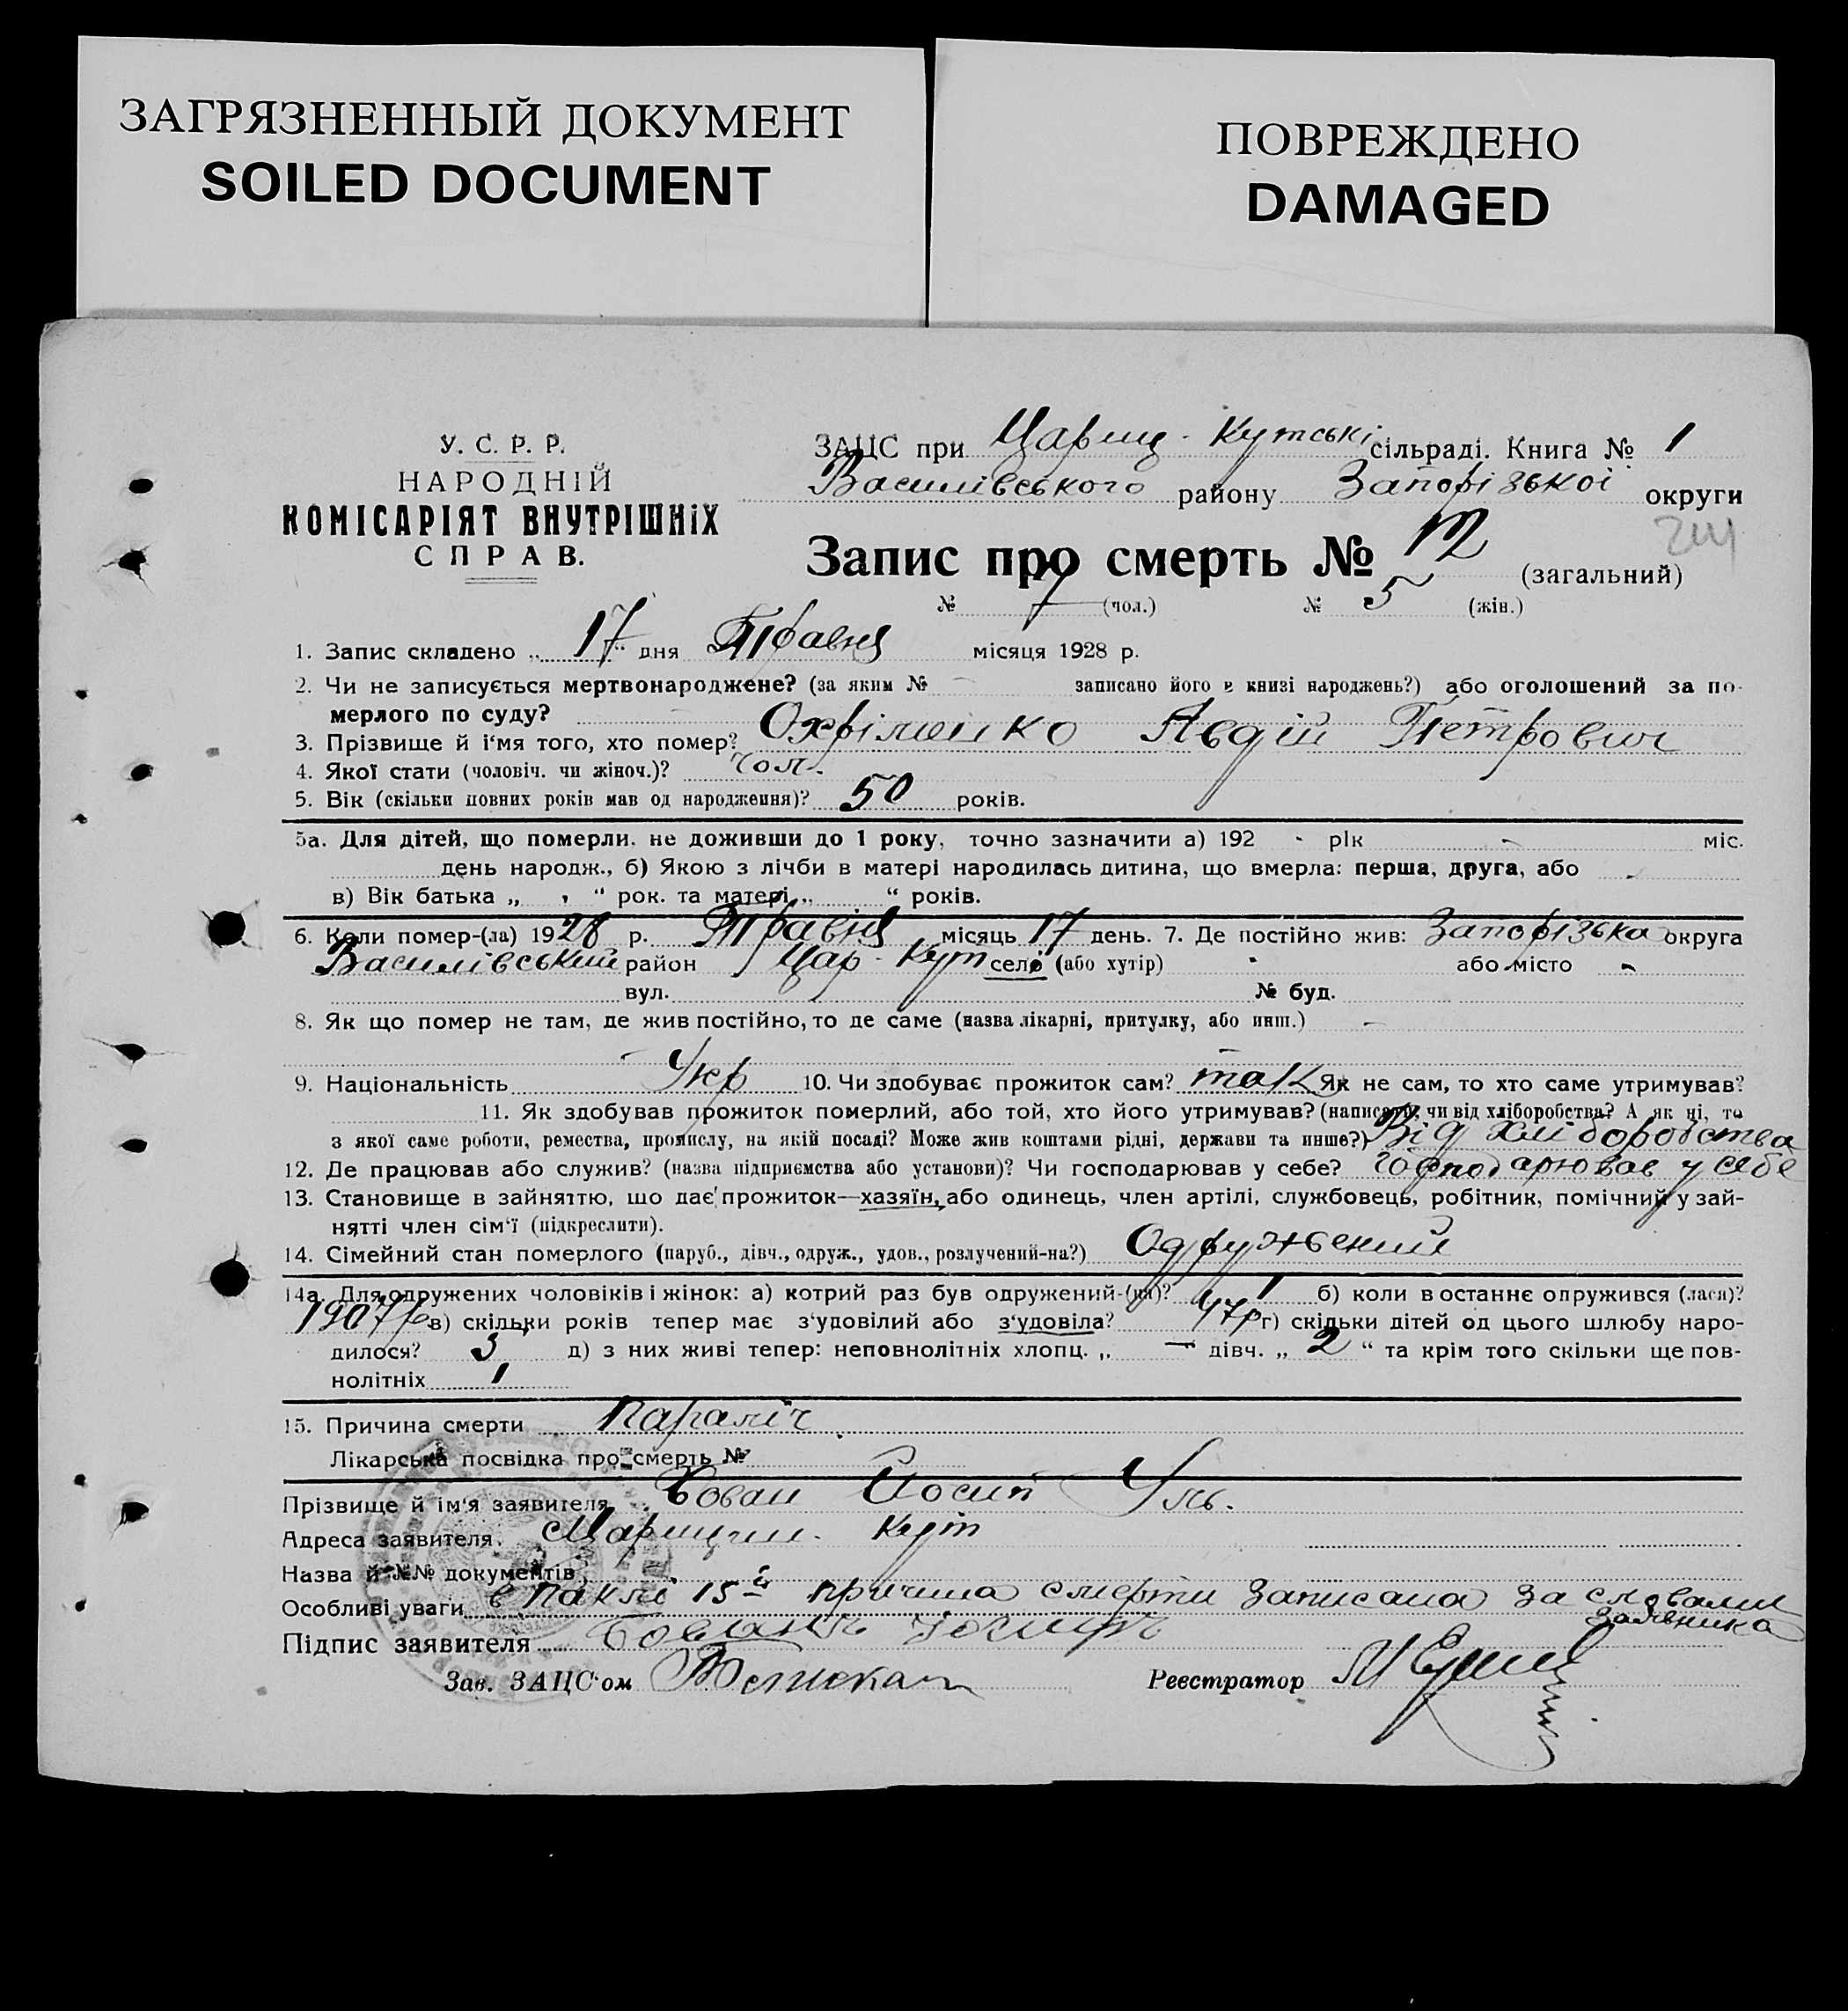 ЗАГРЯЗНЕННЫЙ ДОКУМЕНТ
SOILED DOCUMENT
ПОВРЕЖДЕНО
DAMAGED
У. С. Р. Р.
НАРОДНІЙ
КОМІСАРІЯТ ВНУТРІШНІХ
СПРАВ.
ЗАЦС при Цариц-Кутські сільраді. Книга № 1
Василівського району Запорізької округи
Запис про смерть № 12 (загальний)
№ 7 (чол.) № 5 (жін.)
1. Запис складено „17“ дня Травня місяця 1928 р.
2. Чи не записується мертвонароджене? (за яким № - записано його в книзі народжень?) або оголошений за по-
мерлого по суду?
3. Прізвище й і'мя того, хто помер? Охріменко Авдій Петрович
4. Якої стати (чоловіч. чи жіноч.)? чол.
5. Вік (скільки повних років мав од народження)? 50 років.
5а. Для дітей, що померли, не доживши до 1 року, точно зазначити а) 192 - рік - міс.
день народж., б) Якою з лічби в матері народилась дитина, що вмерла: перша, друга, або -
в) Вік батька „ “ рок. та матері „ “ років.
6. Коли помер-(ла) 1928 р. Травня місяць 17 день. 7. Де постійно жив: Запорізька округа
Василівський район Цар-Кут село (або хутір) - або місто -
вул. № буд.
8. Як що помер не там, де жив постійно, то де саме (назва лікарні, притулку, або инш.) -
9. Національність Укр 10. Чи здобуває прожиток сам? так Як не сам, то хто саме утримував?
11. Як здобував прожиток померлий, або той, хто його утримував? (написати, чи від хліборобства? А як ні, то
з якої саме роботи, ремества, промислу, на якій посаді? Може жив коштами рідні, держави та инше?) Від хліборобства
12. Де працював або служив? (назва підприємства або установи)? Чи господарював у себе? господарював у себе
13. Становище в зайняттю, що дає прожиток—хазяїн, або одинець, член артілі, службовець, робітник, помічний у зай-
нятті член сім'ї (підкреслити).
14. Сімейний стан померлого (паруб., дівч., одруж., удов., розлучений-на?) Одружений
14а. Для одружених чоловіків і жінок: а) котрий раз був одружений-(на)? 1 б) коли востаннє одружився (лася)?
1907 р в) скільки років тепер має з'удовілий або з'удовіла? 47р г) скільки дітей од цього шлюбу наро-
дилося? 3 д) з них живі тепер: неповнолітніх хлопц. „ — “ дівч. „ 2 “ та крім того скільки ще пов-
нолітніх 1
15. Причина смерти Параліч
Лікарська посвідка про смерть №
Прізвище й ім'я заявителя Бован Йосип
Адреса заявителя. Царицин. Кут
Назва й №№ документів
Особливі уваги в пункті 15й причина смерти записана за словами
заявника
Підпис заявителя
Зав. ЗАЦС'ом
Реєстратор